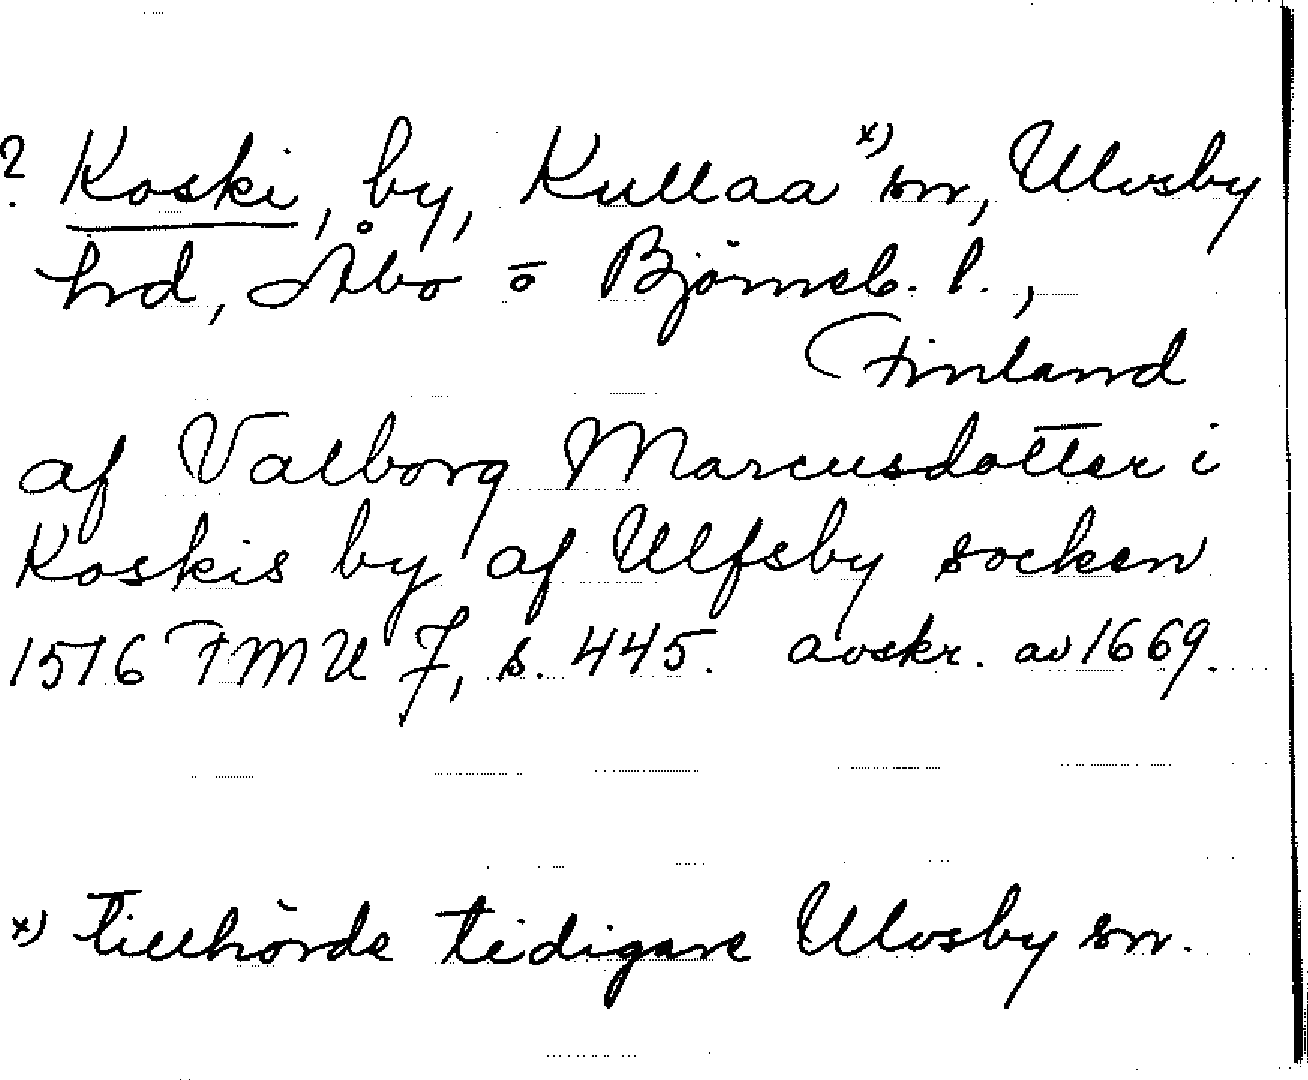 ? Koski, by, Kullaa x) sn, Ulvsby
hd, Åbo o Björneb. l.,
Finland
af Valborg Marcusdotter i
Koskis by af Ulfsby socken
1516 FMU 7, s. 445. avskr. av 1669.
x) tillhörde tidigare Ulvsby sn.